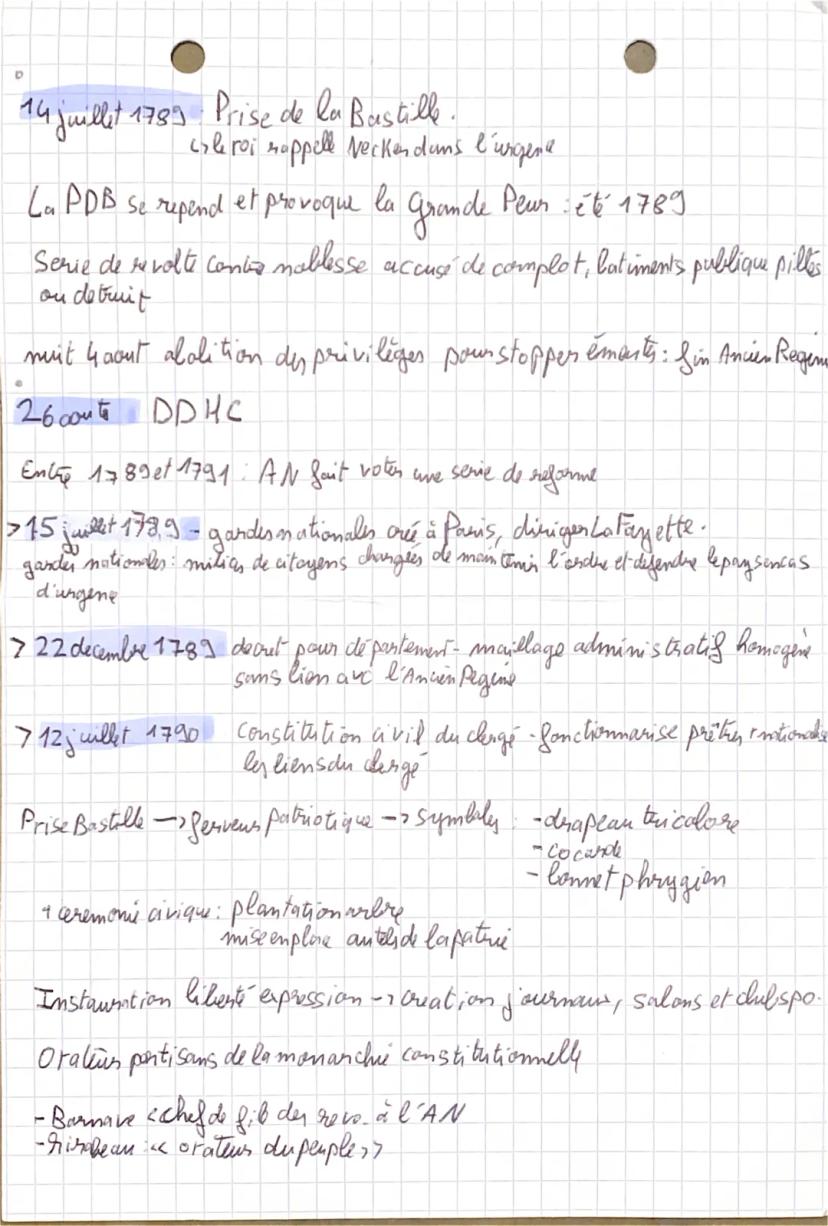 14 juillet 1789 : Prise de la Bastille.
↳ le roi rappelle Necker dans l'urgence
La PDB se repend et provoque la Grande Peur : été 1789
Serie de revolte contre noblesse accusé de complot, batiments publique pillés
ou detruit
nuit 4 aout abolition des privilèges pour stopper émeutes : fin Ancien Regime
26 aout DDHC
Entre 1789 et 1791 : AN fait voter une serie de reforme
> 15 juillet 1789 - gardes nationales créé à Paris, diriger La Fayette.
gardes nationales : milices de citoyens chargées de maintenir l'ordre et defendre le pays en cas
d'urgence
> 22 decembre 1789 decret pour département - maillage administratif homogène
sans lien avec l'Ancien Regime
> 12 juillet 1790 Constitution civil du clergé - fonctionnarise prêtres + nationalise
les biens du clergé
Prise Bastille -> ferveur patriotique -> symboles : - drapeau tricolore
- cocarde
- bonnet phrygien
+ ceremonie civique : plantation arbre
mise en place autels de la patrie
Instauration liberté expression -> creation journaux, salons et clubs po.
Orateurs partisans de la monarchie constitutionnelle
- Barnave « chef de fil des revo. à l'AN
- Mirabeau : « orateur du peuple »